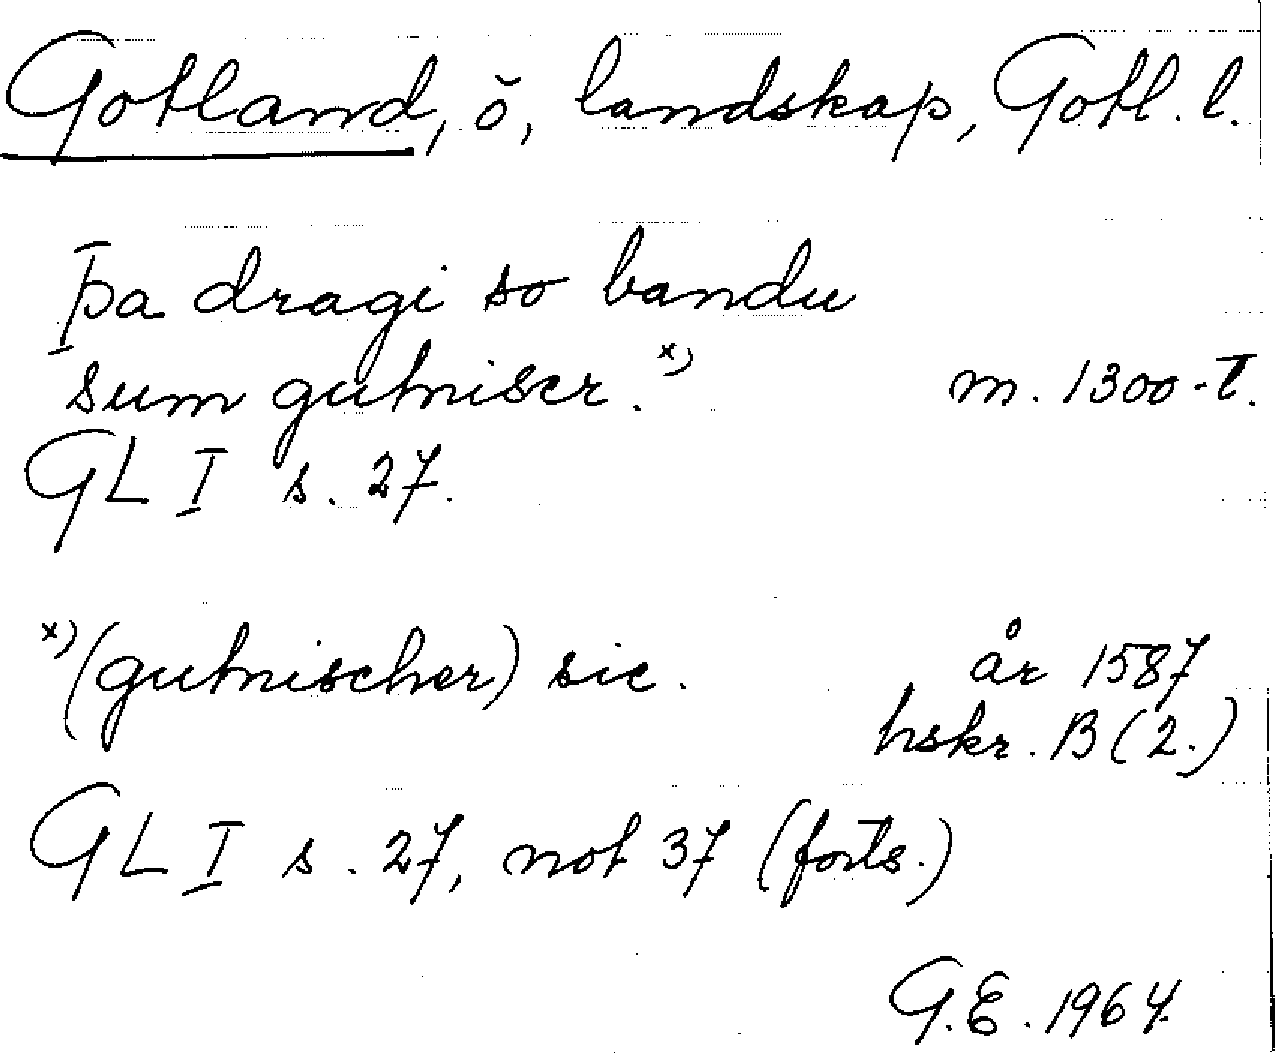 Gotland, ö, landskap, Gotl. l.
Þa dragi so bandu
sum gutniscr. x)
m. 1300-t.
GL I s. 27.
x) (gutnischer) sic.
år 1587
hskr. B (2.)
GL I s. 27, not 37 (forts.)
G.E. 1964